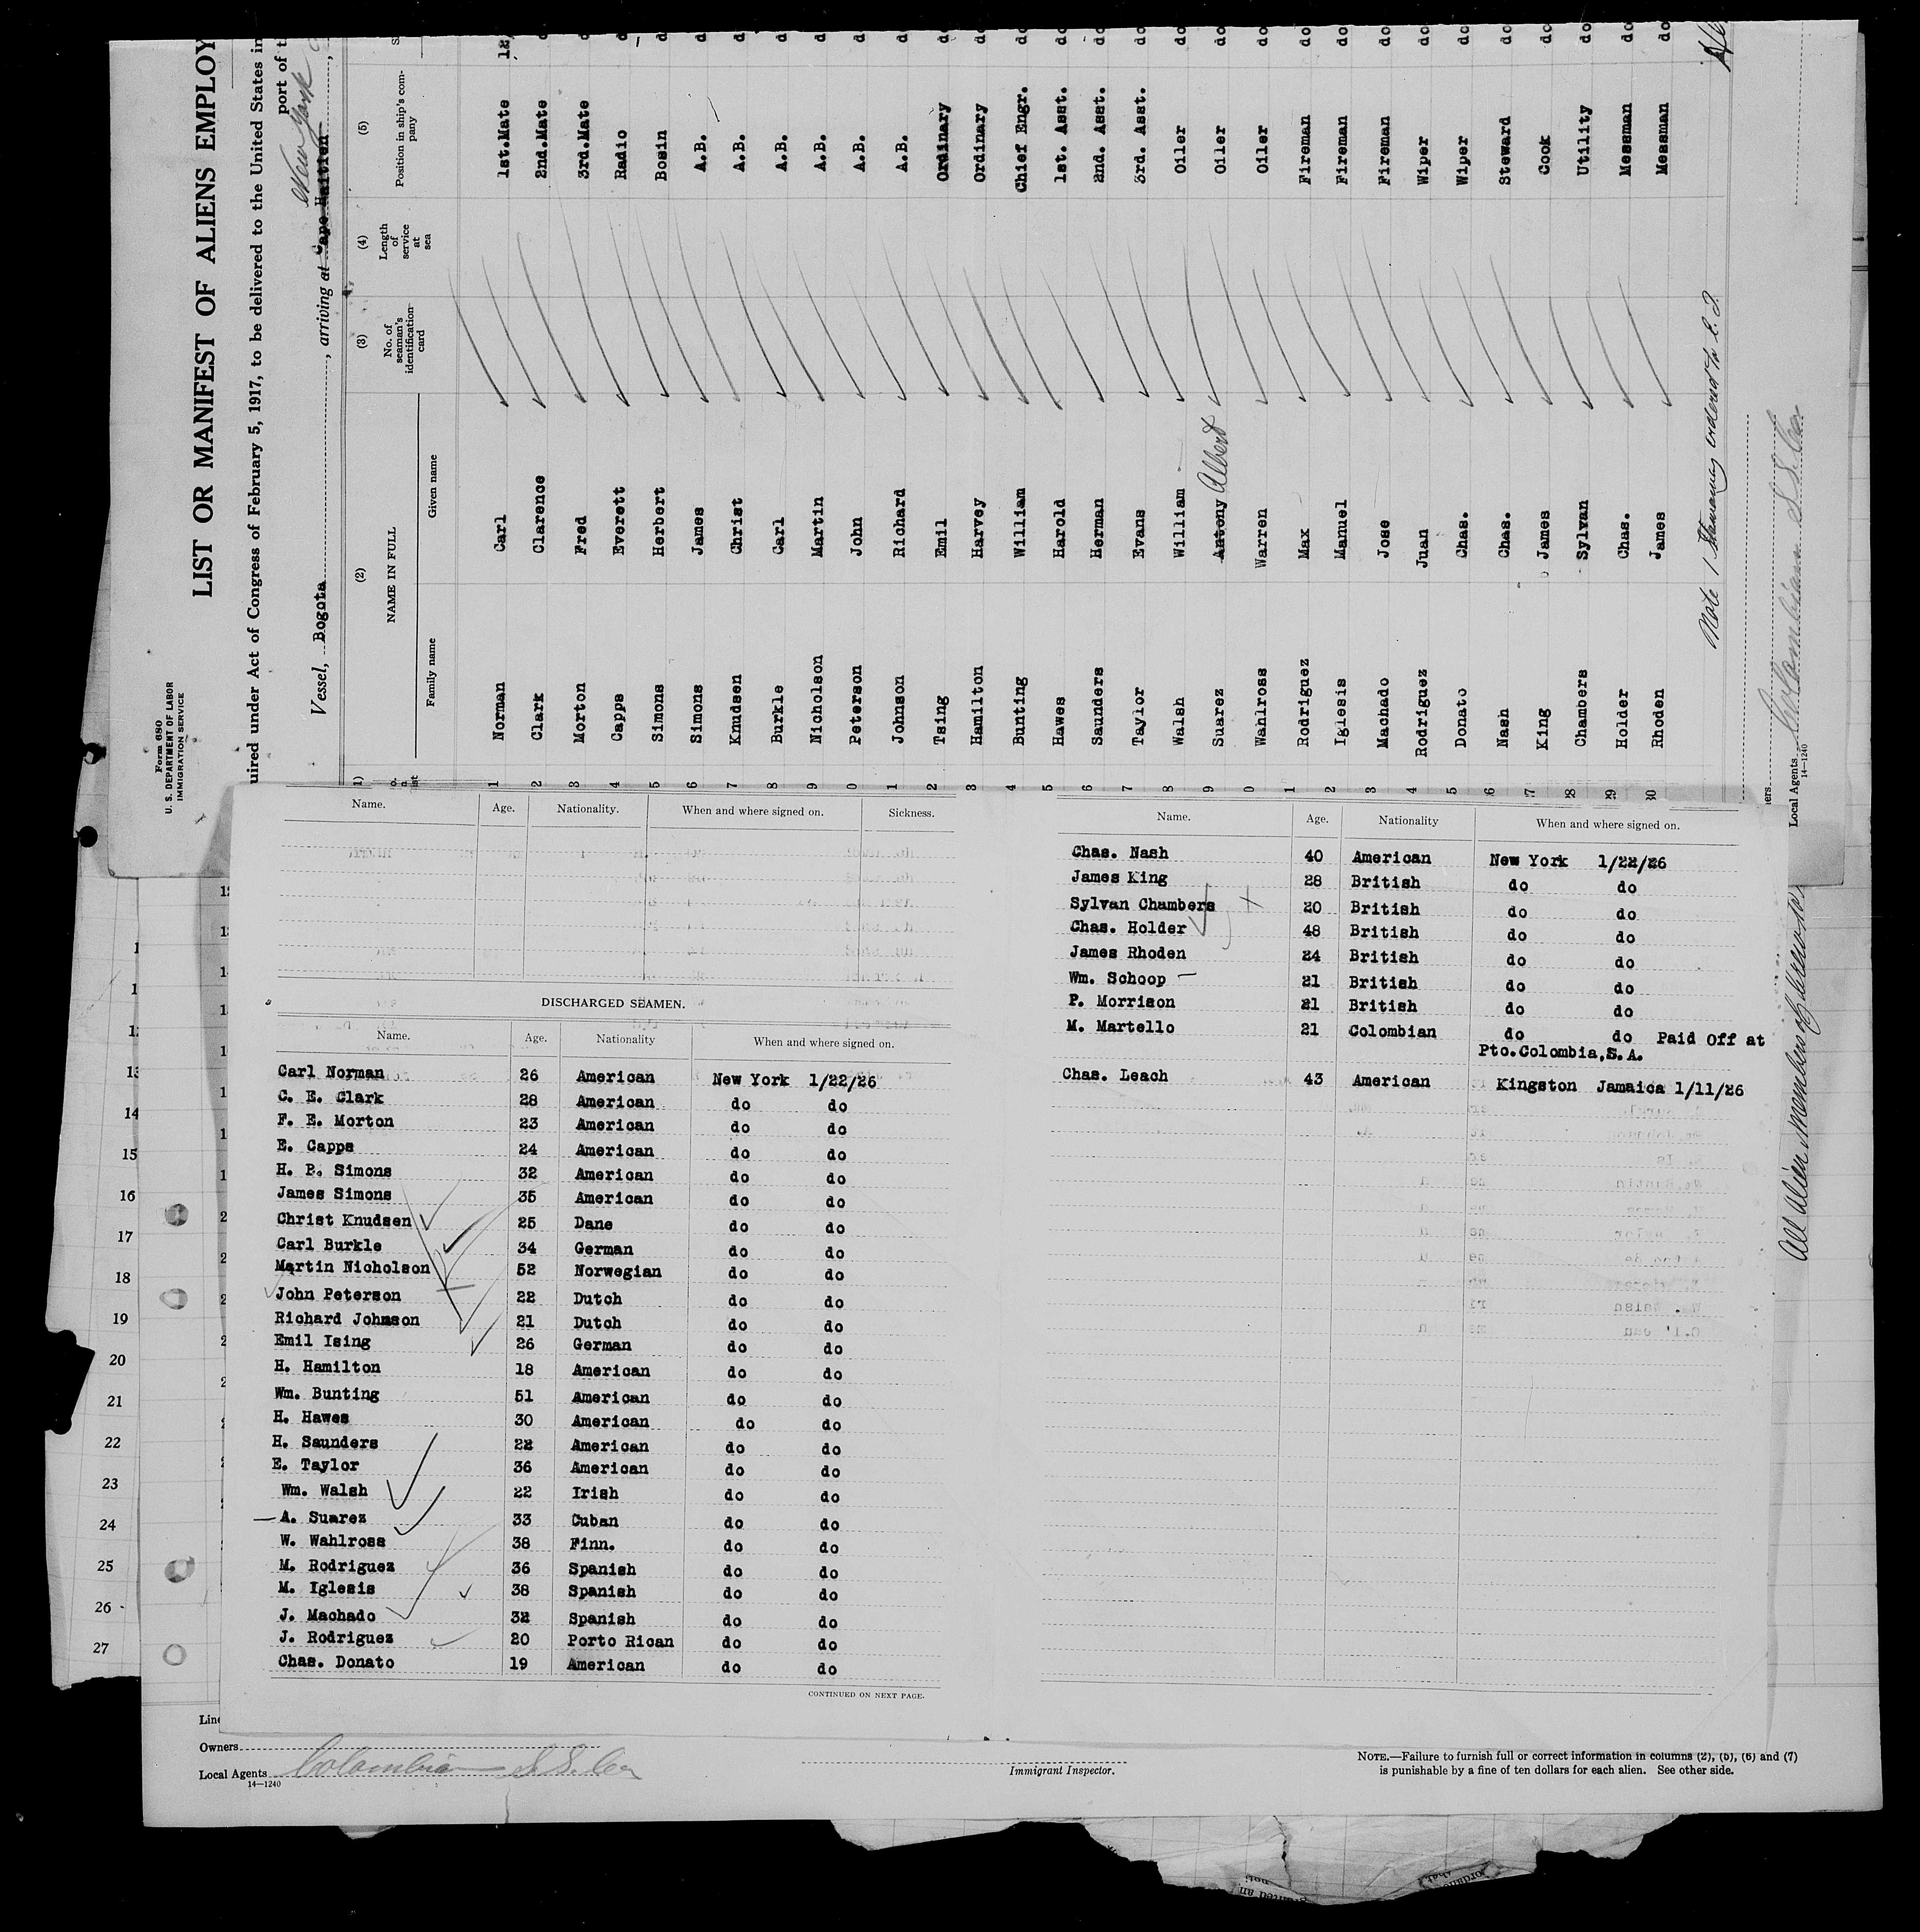 Form 680
U. S. DEPARTMENT OF LABOR
IMMIGRATION SERVICE
LIST OR MANIFEST OF ALIENS EMPLOY
uired under Act of Congress of February 5, 1917, to be delivered to the United States in
port of t
Vessel, Bogota, arriving at Cape Haitien New York
(2) (3) (4) (5)
NAME IN FULL
Family name Given name
No. of seaman's identification card
Length of service at sea
Position in ship's company
1 Norman Carl 1st.Mate 12/
2 Clark Clarence 2nd.Mate d
3 Morton Fred 3rd.Mate d
4 Capps Everett Radio d
5 Simons Herbert Bosin d
6 Simons James A.B. d
7 Knudsen Christ A.B. d
8 Burkle Carl A.B. d
9 Nicholson Martin A.B. d
0 Peterson John A.B. d
1 Johnson Richard A.B. d
2 Tsing Emil Ordinary do
3 Hamilton Harvey Ordinary do
4 Bunting William Chief Engr. do
5 Hawes Harold 1st. Asst. do
6 Saunders Herman 2nd. Asst. do
7 Taylor Evans 3rd. Asst. do
8 Walsh William Oiler do
9 Suarez Antony Albert Oiler do
0 Wahlross Warren Oiler do
1 Rodriguez Max Fireman do
2 Iglesis Manuel Fireman do
3 Machado Jose Fireman do
4 Rodriguez Juan Wiper do
5 Donato Chas. Wiper do
26 Nash Chas. Steward do
27 King James Cook do
28 Chambers Sylvan Utility do
29 Holder Chas. Messman do
30 Rhoden James Messman do
Note 1 Stowaway ordered to E. I.
Local Agents Colombian S.S. Co.
14—1240
Name. Age. Nationality. When and where signed on. Sickness.
DISCHARGED SEAMEN.
Name. Age. Nationality When and where signed on.
Carl Norman 26 American New York 1/22/26
C. E. Clark 28 American do do
F. E. Morton 23 American do do
E. Capps 24 American do do
H. P. Simons 32 American do do
James Simons 35 American do do
Christ Knudsen 25 Dane do do
Carl Burkle 34 German do do
Martin Nicholson 52 Norwegian do do
John Peterson 22 Dutch do do
Richard Johnson 21 Dutch do do
Emil Ising 26 German do do
H. Hamilton 18 American do do
Wm. Bunting 51 American do do
H. Hawes 30 American do do
H. Saunders 22 American do do
E. Taylor 36 American do do
Wm. Walsh 22 Irish do do
A. Suarez 33 Cuban do do
W. Wahlross 38 Finn. do do
M. Rodriguez 36 Spanish do do
M. Iglesis 38 Spanish do do
J. Machado 32 Spanish do do
J. Rodriguez 20 Porto Rican do do
Chas. Donato 19 American do do
CONTINUED ON NEXT PAGE.
Name. Age. Nationality When and where signed on.
Chas. Nash 40 American New York 1/22/26
James King 28 British do do
Sylvan Chambers 20 British do do
Chas. Holder 48 British do do
James Rhoden 24 British do do
Wm. Schoop 21 British do do
P. Morrison 21 British do do
M. Martello 21 Colombian do do Paid Off at
Pto.Colombia,S.A.
Chas. Leach 43 American Kingston Jamaica 1/11/26
All Alien Members of
13
14
15
16
17
18
19
20
21
22
23
24
25
26
27
Line
Owners
Local Agents Colombian S.S. Co.
14—1240
Immigrant Inspector.
NOTE.—Failure to furnish full or correct information in columns (2), (5), (6) and (7)
is punishable by a fine of ten dollars for each alien. See other side.